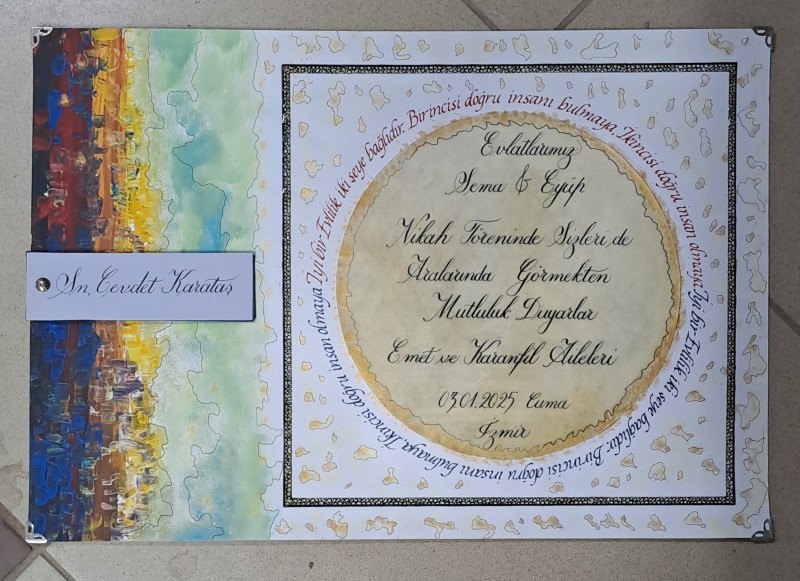 Sn, Cevdet Karataş
İyi bir Evlilik iki şeye bağlıdır: Birincisi doğru insanı bulmaya, İkincisi doğru insan olmaya
İyi bir Evlilik iki şeye bağlıdır: Birincisi doğru insanı bulmaya, İkincisi doğru insan olmaya
Evlatlarımız
Sema & Eyüp
Nikah Töreninde Sizleri de
Aralarında Görmekten
Mutluluk Duyarlar
Emet ve Karanfil Aileleri
03.01.2025 Cuma
İzmir